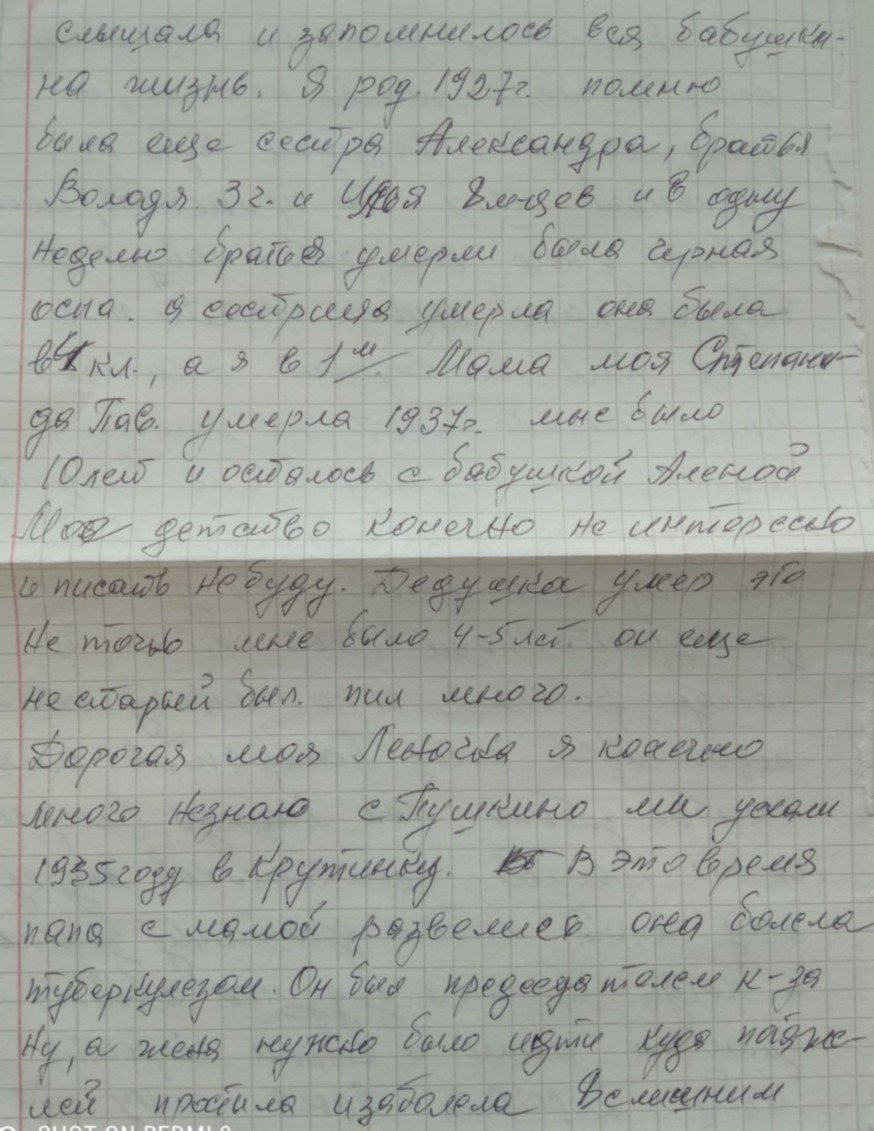 слышала и запомнилось вся бабушки-
на жизнь. Я род. 1927г. помню
была еще сестра Александра, братья
Володя 3 г. и Илья 8 м-цев и в одну
неделю братья умерли была черная
оспа. а сестрица умерла она была
в 4 кл., а я в 1м. Мама моя Степани-
да Пав. умерла 1937г. мне было
10 лет и осталось с бабушкой Аленой
Мое детство конечно не интересно
и писать небуду. Дедушка умер это
не точно мне было 4-5 лет. он еще
не старый был. пил много.
Дорогая моя Леночка я конечно
много незнаю с Пушкино мы уехали
1935 году в Крутинку. В это время
папа с мамой развелись она болела
туберкулезом. Он был председателем к-за
Ну, а жена нужно было идти куда
простила и заболела
SHOT ON